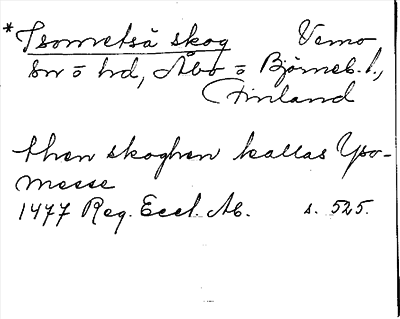 *Isometsä skog Vemo
sn o hd, Åbo o Björneb. l.,
Finland
then skoghen kallas Yso-
messe
1477 Reg. Eccl. Ab. s. 525.